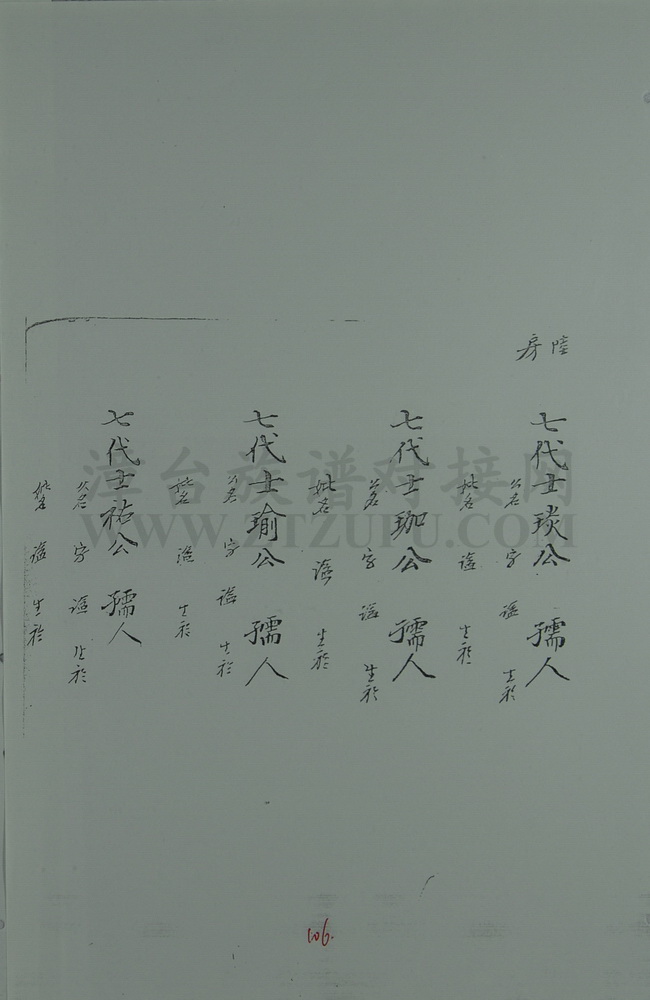 陸房
七代士琰公 孺人
公名 字 謚 生於
妣名 謚 生於
七代士珈公 孺人
公名 字 謚 生於
妣名 謚 生於
七代士瑜公 孺人
公名 字 謚 生於
妣名 謚 生於
七代士祐公 孺人
公名 字 謚 生於
妣名 謚 生於
漳台族谱对接网
WWW.ZTZUPU.COM
106.